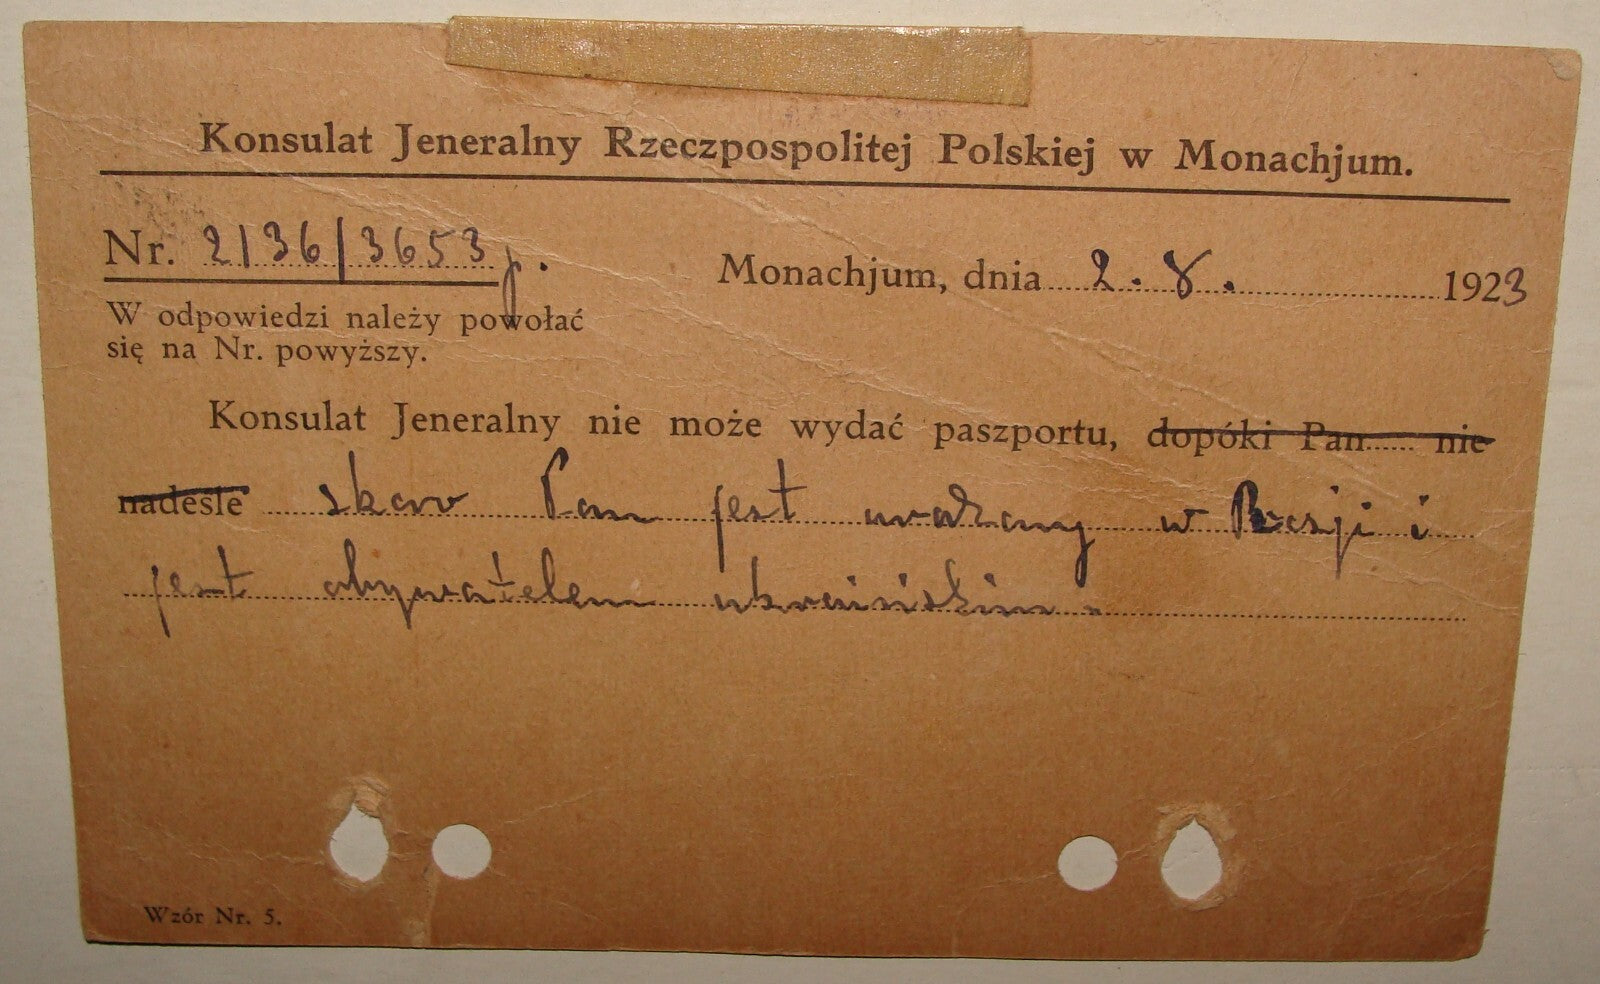 Konsulat Jeneralny Rzeczpospolitej Polskiej w Monachjum.
Nr. 2136/3653 j.
Monachjum, dnia 2. 8. 1923
W odpowiedzi należy powołać
się na Nr. powyższy.
Konsulat Jeneralny nie może wydać paszportu, dopóki Pan...... nie
nadeśle skoro Pan jest uważany w Rosji i
jest obywatelem ukraińskim.
Wzór Nr. 5.